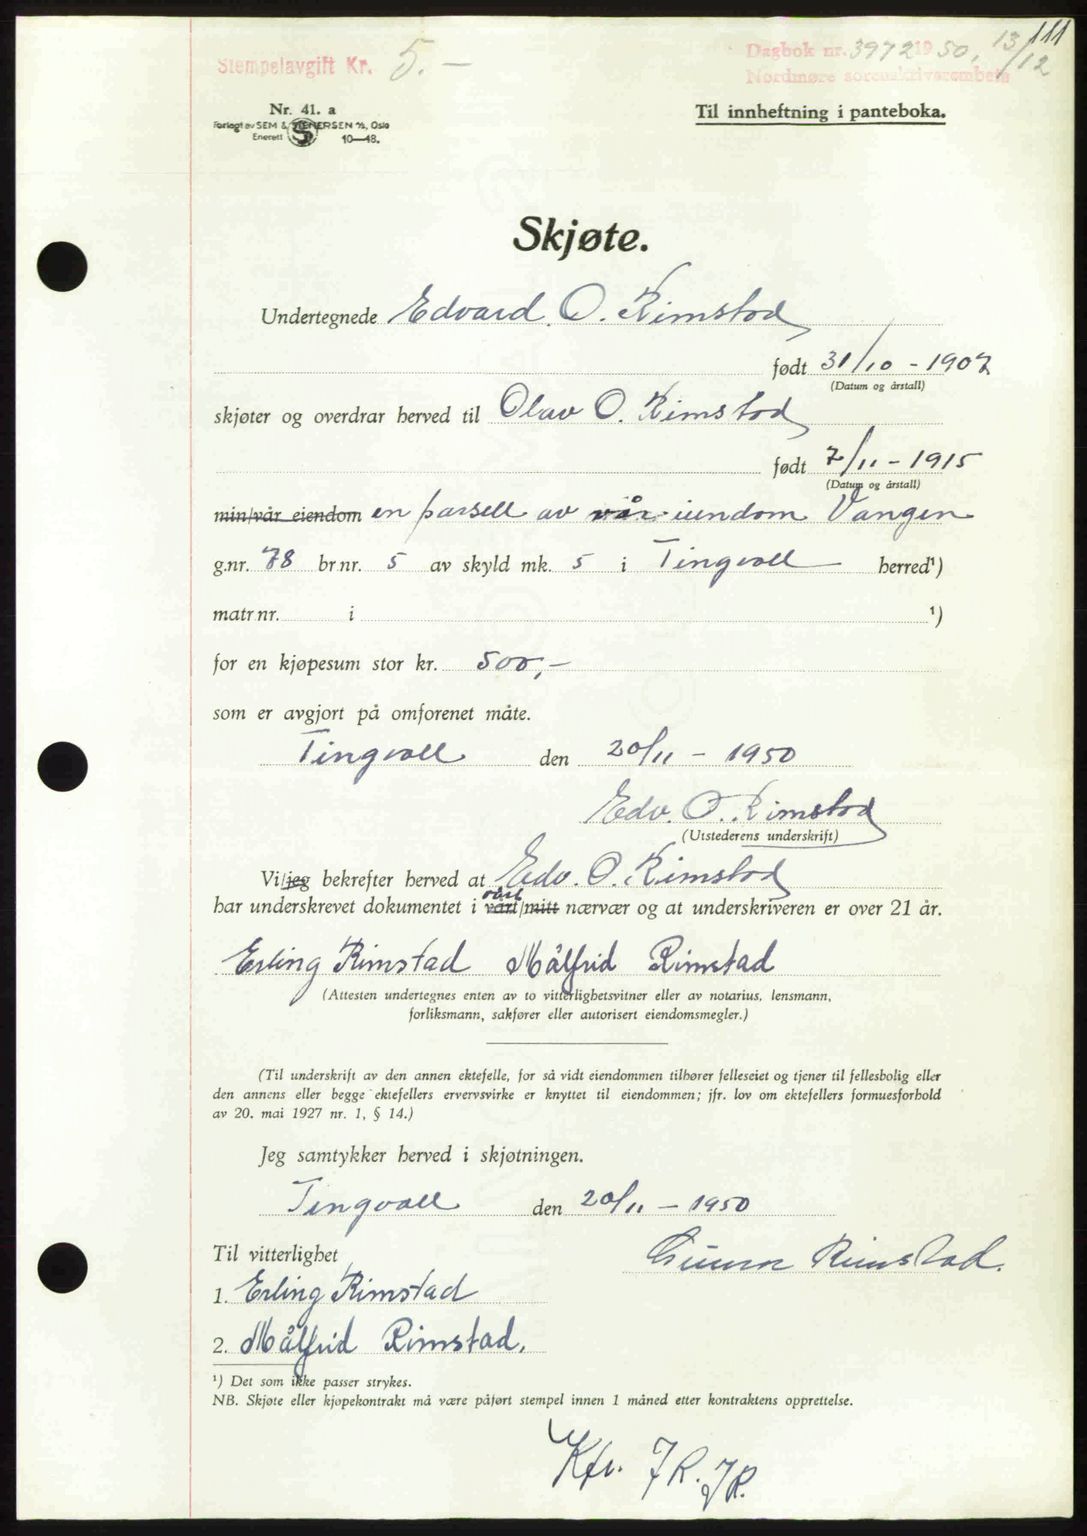 111
Stempelavgift Kr. 5.-
Dagbok nr. 3972 1950, 13/12
Nordmøre sorenskriverembete
Nr. 41. a
Forlagt av SEM & STENERSEN A/S, Oslo
Enerett 10—48.
Til innheftning i panteboka.
Skjøte.
Undertegnede Edvard O. Rimstad
født 31/10 - 1907
(Datum og årstall)
skjøter og overdrar herved til Olav O. Rimstad
født 7/11 - 1915
(Datum og årstall)
min/vår eiendom en parsell av vår eiendom Vangen
g.nr. 78 br.nr. 5 av skyld mk. 5 i Tingvoll herred¹)
matr.nr. i ¹)
for en kjøpesum stor kr. 500,-
som er avgjort på omforenet måte.
Tingvoll den 20/11 - 1950
Edv. O. Rimstad
(Utstederens underskrift)
Vi/jeg bekrefter herved at Edv. O. Rimstad
vårt
har underskrevet dokumentet i vårt/mitt nærvær og at underskriveren er over 21 år.
Erling Rimstad Målfrid Rimstad
(Attesten undertegnes enten av to vitterlighetsvitner eller av notarius, lensmann,
forliksmann, sakfører eller autorisert eiendomsmegler.)
(Til underskrift av den annen ektefelle, for så vidt eiendommen tilhører felleseiet og tjener til fellesbolig eller
den annens eller begge ektefellers ervervsvirke er knyttet til eiendommen; jfr. lov om ektefellers formuesforhold
av 20. mai 1927 nr. 1, § 14.)
Jeg samtykker herved i skjøtningen.
Tingvoll den 20/11 - 1950
Til vitterlighet
Gunn Rimstad.
1. Erling Rimstad
2. Målfrid Rimstad.
¹) Det som ikke passer strykes.
NB. Skjøte eller kjøpekontrakt må være påført stempel innen 1 måned etter kontraktens opprettelse.
Kfr. JR. JR.